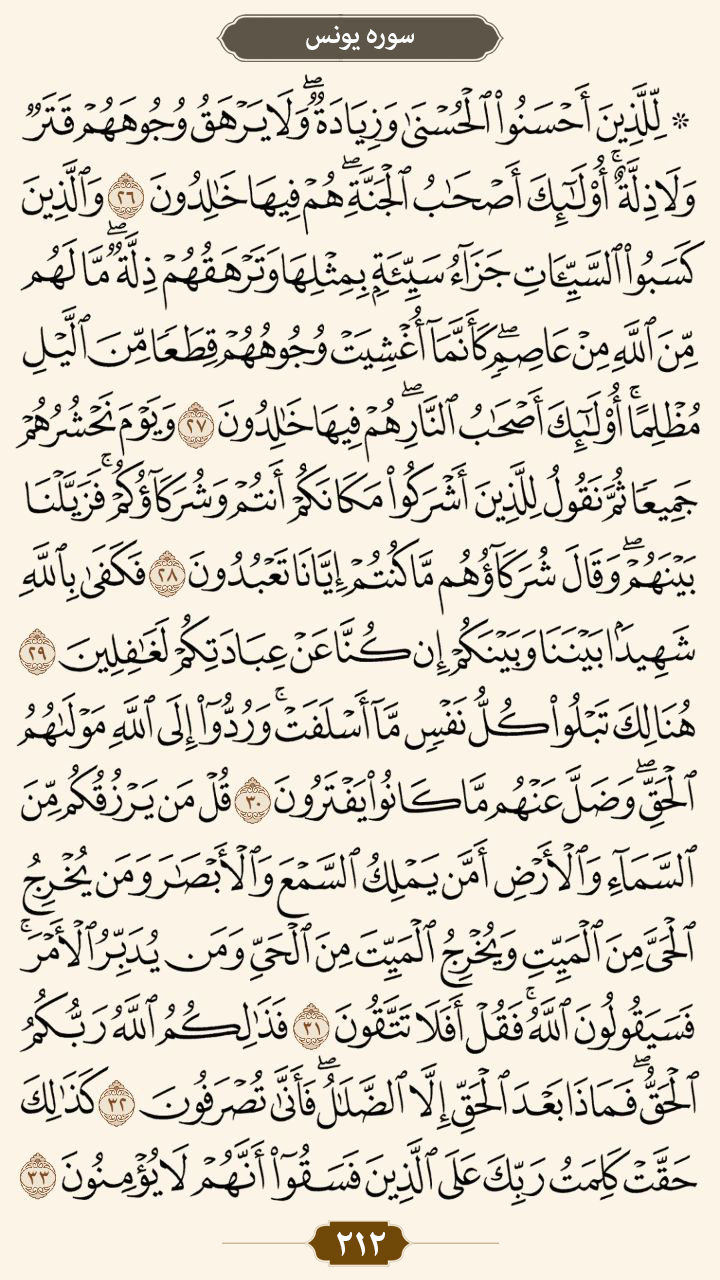 سوره یونس
* لِّلَّذِينَ أَحْسَنُوا۟ ٱلْحُسْنَىٰ وَزِيَادَةٌۖ وَلَا يَرْهَقُ وُجُوهَهُمْ قَتَرٌ
وَلَا ذِلَّةٌۚ أُو۟لَـٰٓئِكَ أَصْحَـٰبُ ٱلْجَنَّةِۖ هُمْ فِيهَا خَـٰلِدُونَ ٢٦ وَٱلَّذِينَ
كَسَبُوا۟ ٱلسَّيِّـَٔاتِ جَزَآءُ سَيِّئَةِۭ بِمِثْلِهَا وَتَرْهَقُهُمْ ذِلَّةٌۖ مَّا لَهُم
مِّنَ ٱللَّهِ مِنْ عَاصِمٍۖ كَأَنَّمَآ أُغْشِيَتْ وُجُوهُهُمْ قِطَعًا مِّنَ ٱلَّيْلِ
مُظْلِمًاۚ أُو۟لَـٰٓئِكَ أَصْحَـٰبُ ٱلنَّارِۖ هُمْ فِيهَا خَـٰلِدُونَ ٢٧ وَيَوْمَ نَحْشُرُهُمْ
جَمِيعًا ثُمَّ نَقُولُ لِلَّذِينَ أَشْرَكُوا۟ مَكَانَكُمْ أَنتُمْ وَشُرَكَآؤُكُمْۚ فَزَيَّلْنَا
بَيْنَهُمْۖ وَقَالَ شُرَكَآؤُهُم مَّا كُنتُمْ إِيَّانَا تَعْبُدُونَ ٢٨ فَكَفَىٰ بِٱللَّهِ
شَهِيدًۢا بَيْنَنَا وَبَيْنَكُمْ إِن كُنَّا عَنْ عِبَادَتِكُمْ لَغَـٰفِلِينَ ٢٩
هُنَالِكَ تَبْلُوا۟ كُلُّ نَفْسٍ مَّآ أَسْلَفَتْۚ وَرُدُّوٓا۟ إِلَى ٱللَّهِ مَوْلَىٰهُمُ
ٱلْحَقِّۖ وَضَلَّ عَنْهُم مَّا كَانُوا۟ يَفْتَرُونَ ٣٠ قُلْ مَن يَرْزُقُكُم مِّنَ
ٱلسَّمَآءِ وَٱلْأَرْضِ أَمَّن يَمْلِكُ ٱلسَّمْعَ وَٱلْأَبْصَـٰرَ وَمَن يُخْرِجُ
ٱلْحَىَّ مِنَ ٱلْمَيِّتِ وَيُخْرِجُ ٱلْمَيِّتَ مِنَ ٱلْحَىِّ وَمَن يُدَبِّرُ ٱلْأَمْرَۚ
فَسَيَقُولُونَ ٱللَّهُۚ فَقُلْ أَفَلَا تَتَّقُونَ ٣١ فَذَٰلِكُمُ ٱللَّهُ رَبُّكُمُ
ٱلْحَقُّۖ فَمَاذَا بَعْدَ ٱلْحَقِّ إِلَّا ٱلضَّلَـٰلُۖ فَأَنَّىٰ تُصْرَفُونَ ٣٢ كَذَٰلِكَ
حَقَّتْ كَلِمَتُ رَبِّكَ عَلَى ٱلَّذِينَ فَسَقُوٓا۟ أَنَّهُمْ لَا يُؤْمِنُونَ ٣٣
٢١٢